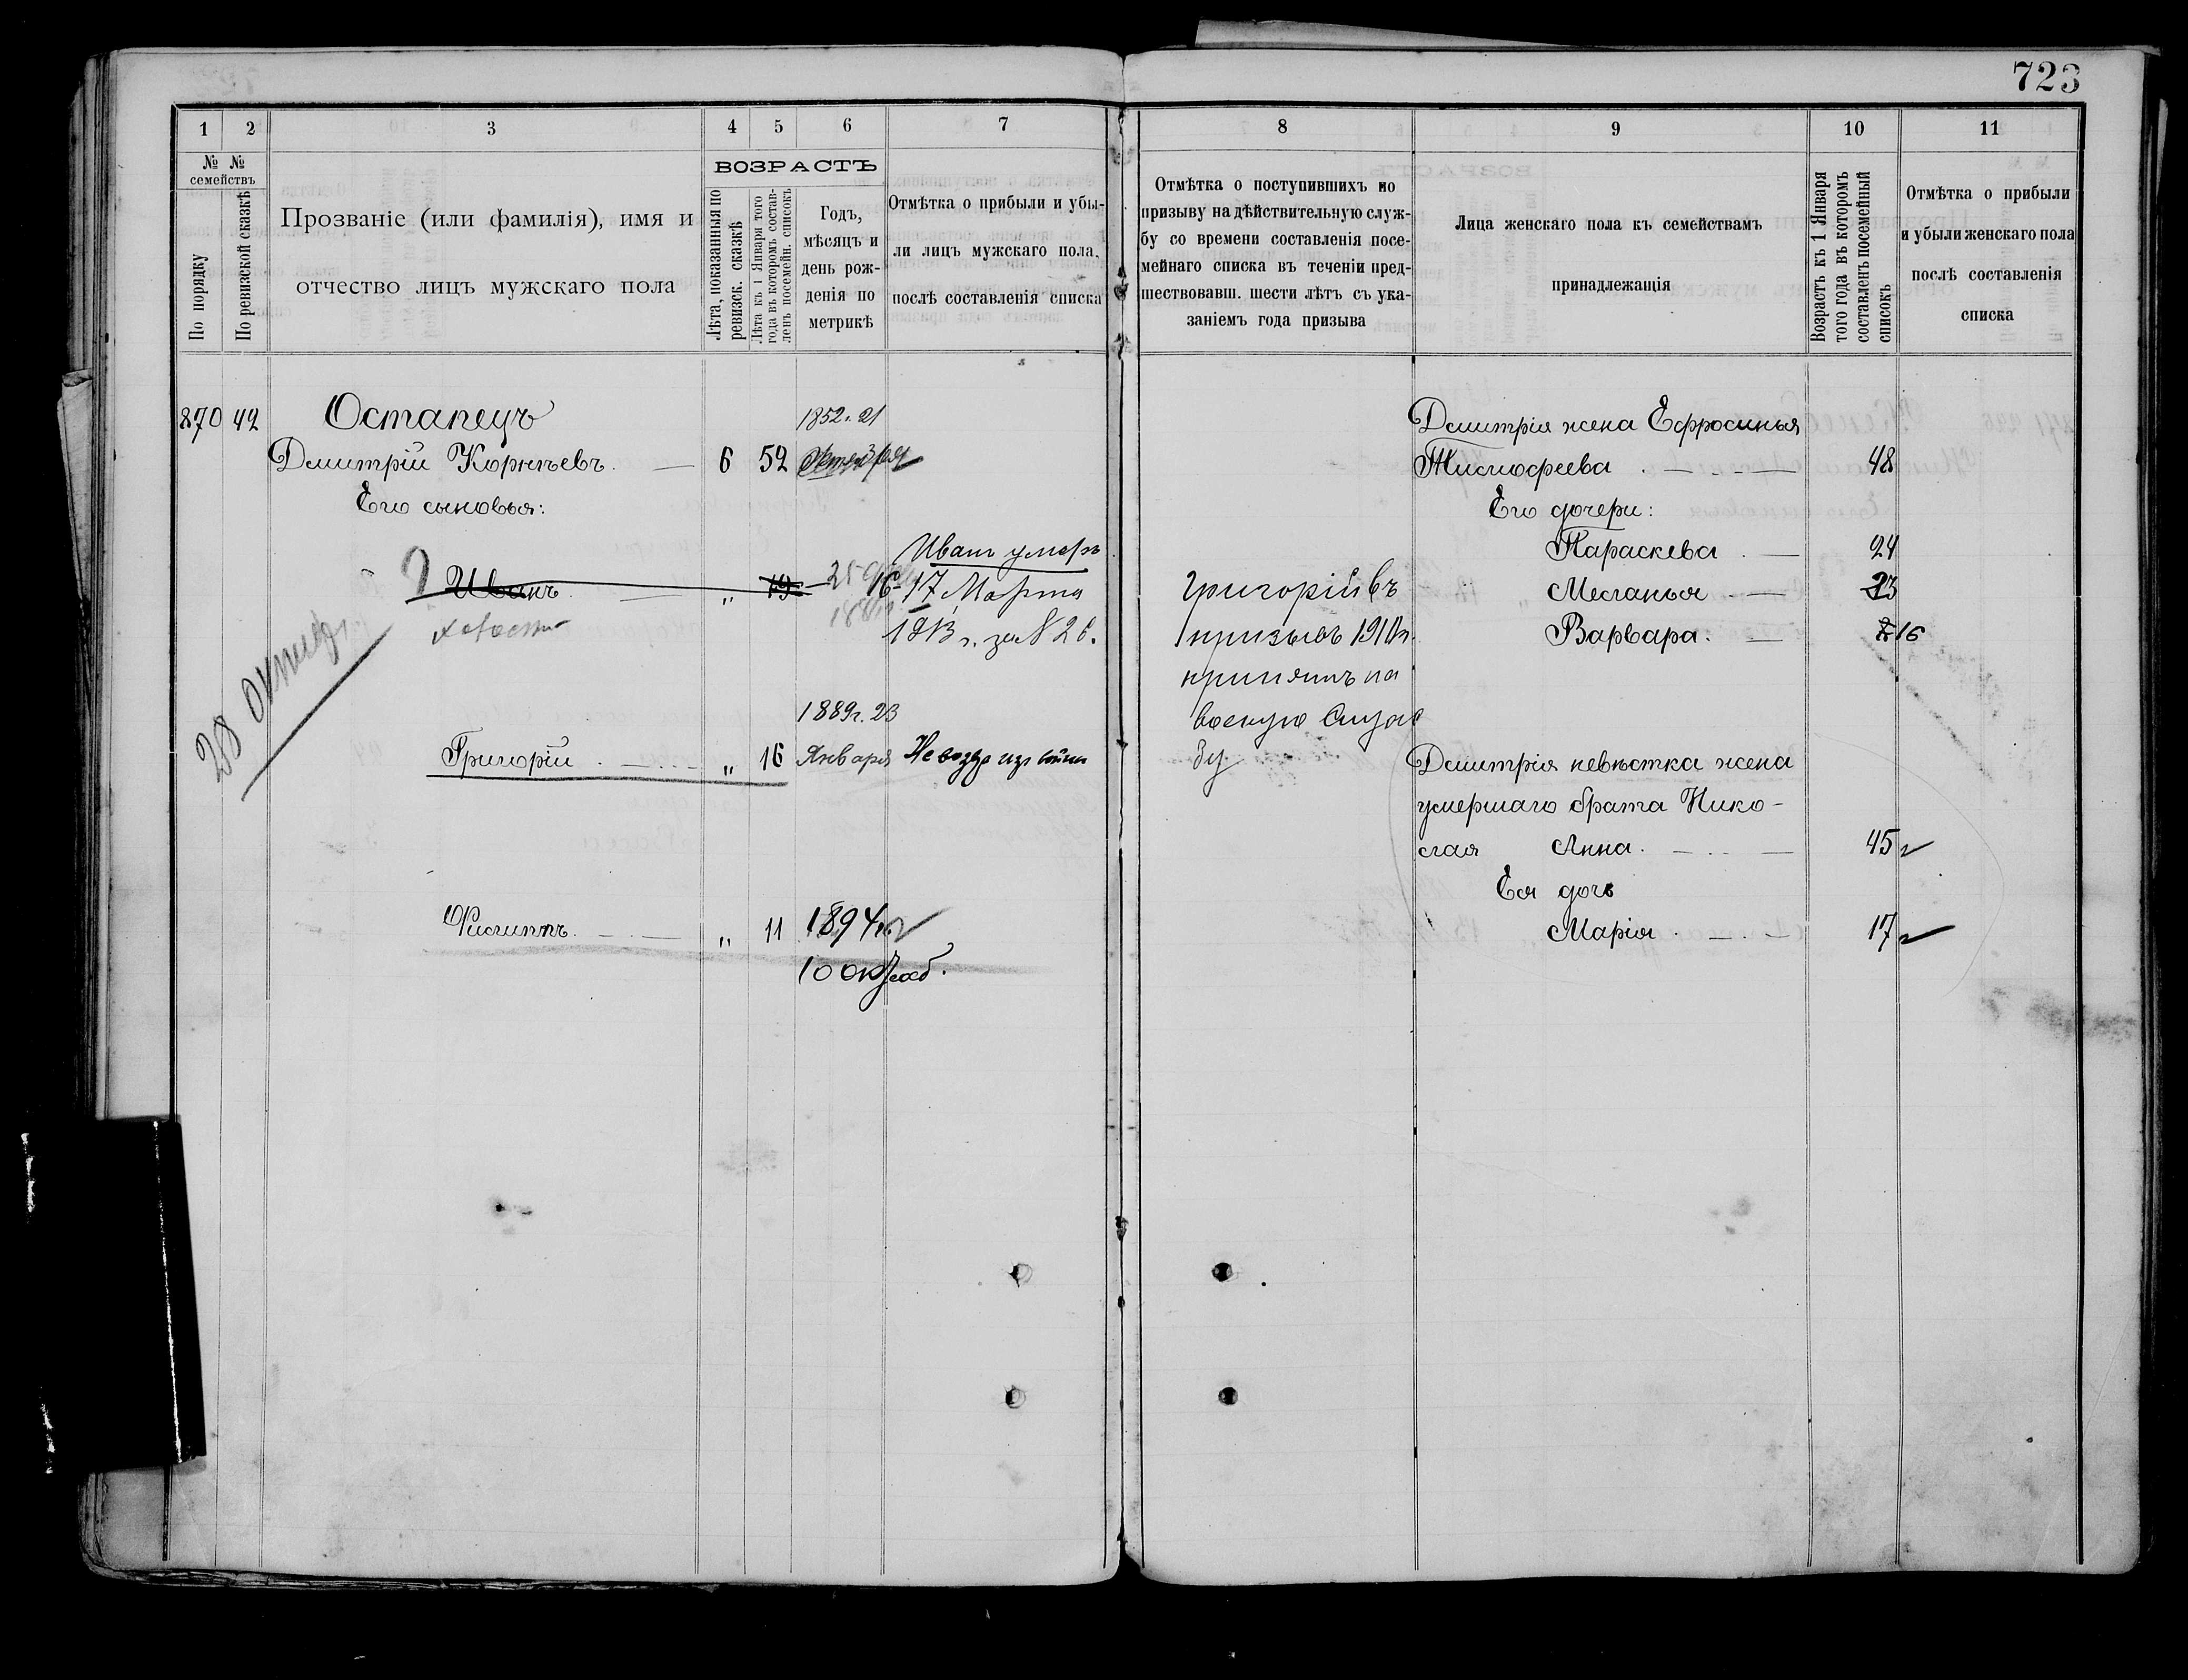 723
1
2
3
4
5
6
7
8
9
10
11
№ №
семействъ
По порядку
По ревизской сказкѣ
Прозваніе (или фамилія), имя и
отчество лицъ мужскаго пола
ВОЗРАСТЪ
Лѣта, показанныя по
ревизск. сказкѣ
Лѣта къ 1 Января того
года въ которомъ состав-
ленъ посемейн. списокъ
Годъ,
мѣсяцъ и
день рож-
денія по
метрикѣ
Отмѣтка о прибыли и убы-
ли лицъ мужскаго пола,
послѣ составленія списка
Отмѣтка о поступившихъ по
призыву на дѣйствительную служ-
бу со времени составленія посе-
мейнаго списка въ теченіи пред-
шествовавш. шести лѣтъ съ ука-
заніемъ года призыва
Лица женскаго пола къ семействамъ
принадлежащія
Возрастъ къ 1 Января
того года въ которомъ
составленъ посемейный
списокъ
Отмѣтка о прибыли
и убыли женскаго пола
послѣ составленія
списка
870 42 Остапецъ 1852. 21
Дмитрій Корнѣевъ. 6 52
Его сыновья:
Иванъ. „ 19
Иванъ умеръ
17 Марта
1913 г. за № 26.
28
1889г. 23
Григорій „ 16 Января
Филиппъ. „ 11 1894г.
10
Григорій въ
призывъ 1910г.
принятъ на
военную служ
бу
Дмитрія жена Ефросинья
Тимофеева 48
Его дочери:
Параскева 24
Меланья 23
Варвара. 16
Дмитрія невѣстка жена
умершаго брата Нико-
лая Анна. 45
Ея дочь
Марія 17